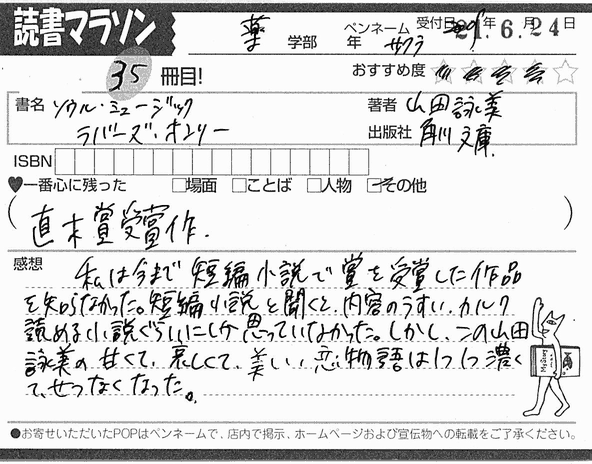 読書マラソン
薬 学部 年 ペンネーム サクラ 受付日 21年6月24日
35 冊目!
おすすめ度 ☆☆☆☆☆
書名 ソウル・ミュージック
ラバーズ・オンリー
著者 山田詠美
出版社 角川文庫
ISBN
♥一番心に残った □場面 □ことば □人物 □その他
(直木賞受賞作.)
感想 私は今まで短編小説で賞を受賞した作品
を知らなかった。短編小説と聞くと、内容のうすい、カルク
読める小説ぐらいにしか思っていなかった。しかし、この山田
詠美の甘くて、哀しくて、美しい、恋物語は1つ1つ濃く
て、せつなくなった。
Mystery
●お寄せいただいたPOPはペンネームで、店内で掲示、ホームページおよび宣伝物への転載をご了承ください。